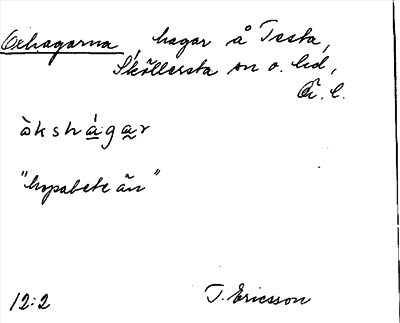 Oxhagarna, hagar å Testa,
Sköllersta sn o. hd,
Ör. l.
òkshágar
"hopabete än"
12:2 T. Ericsson